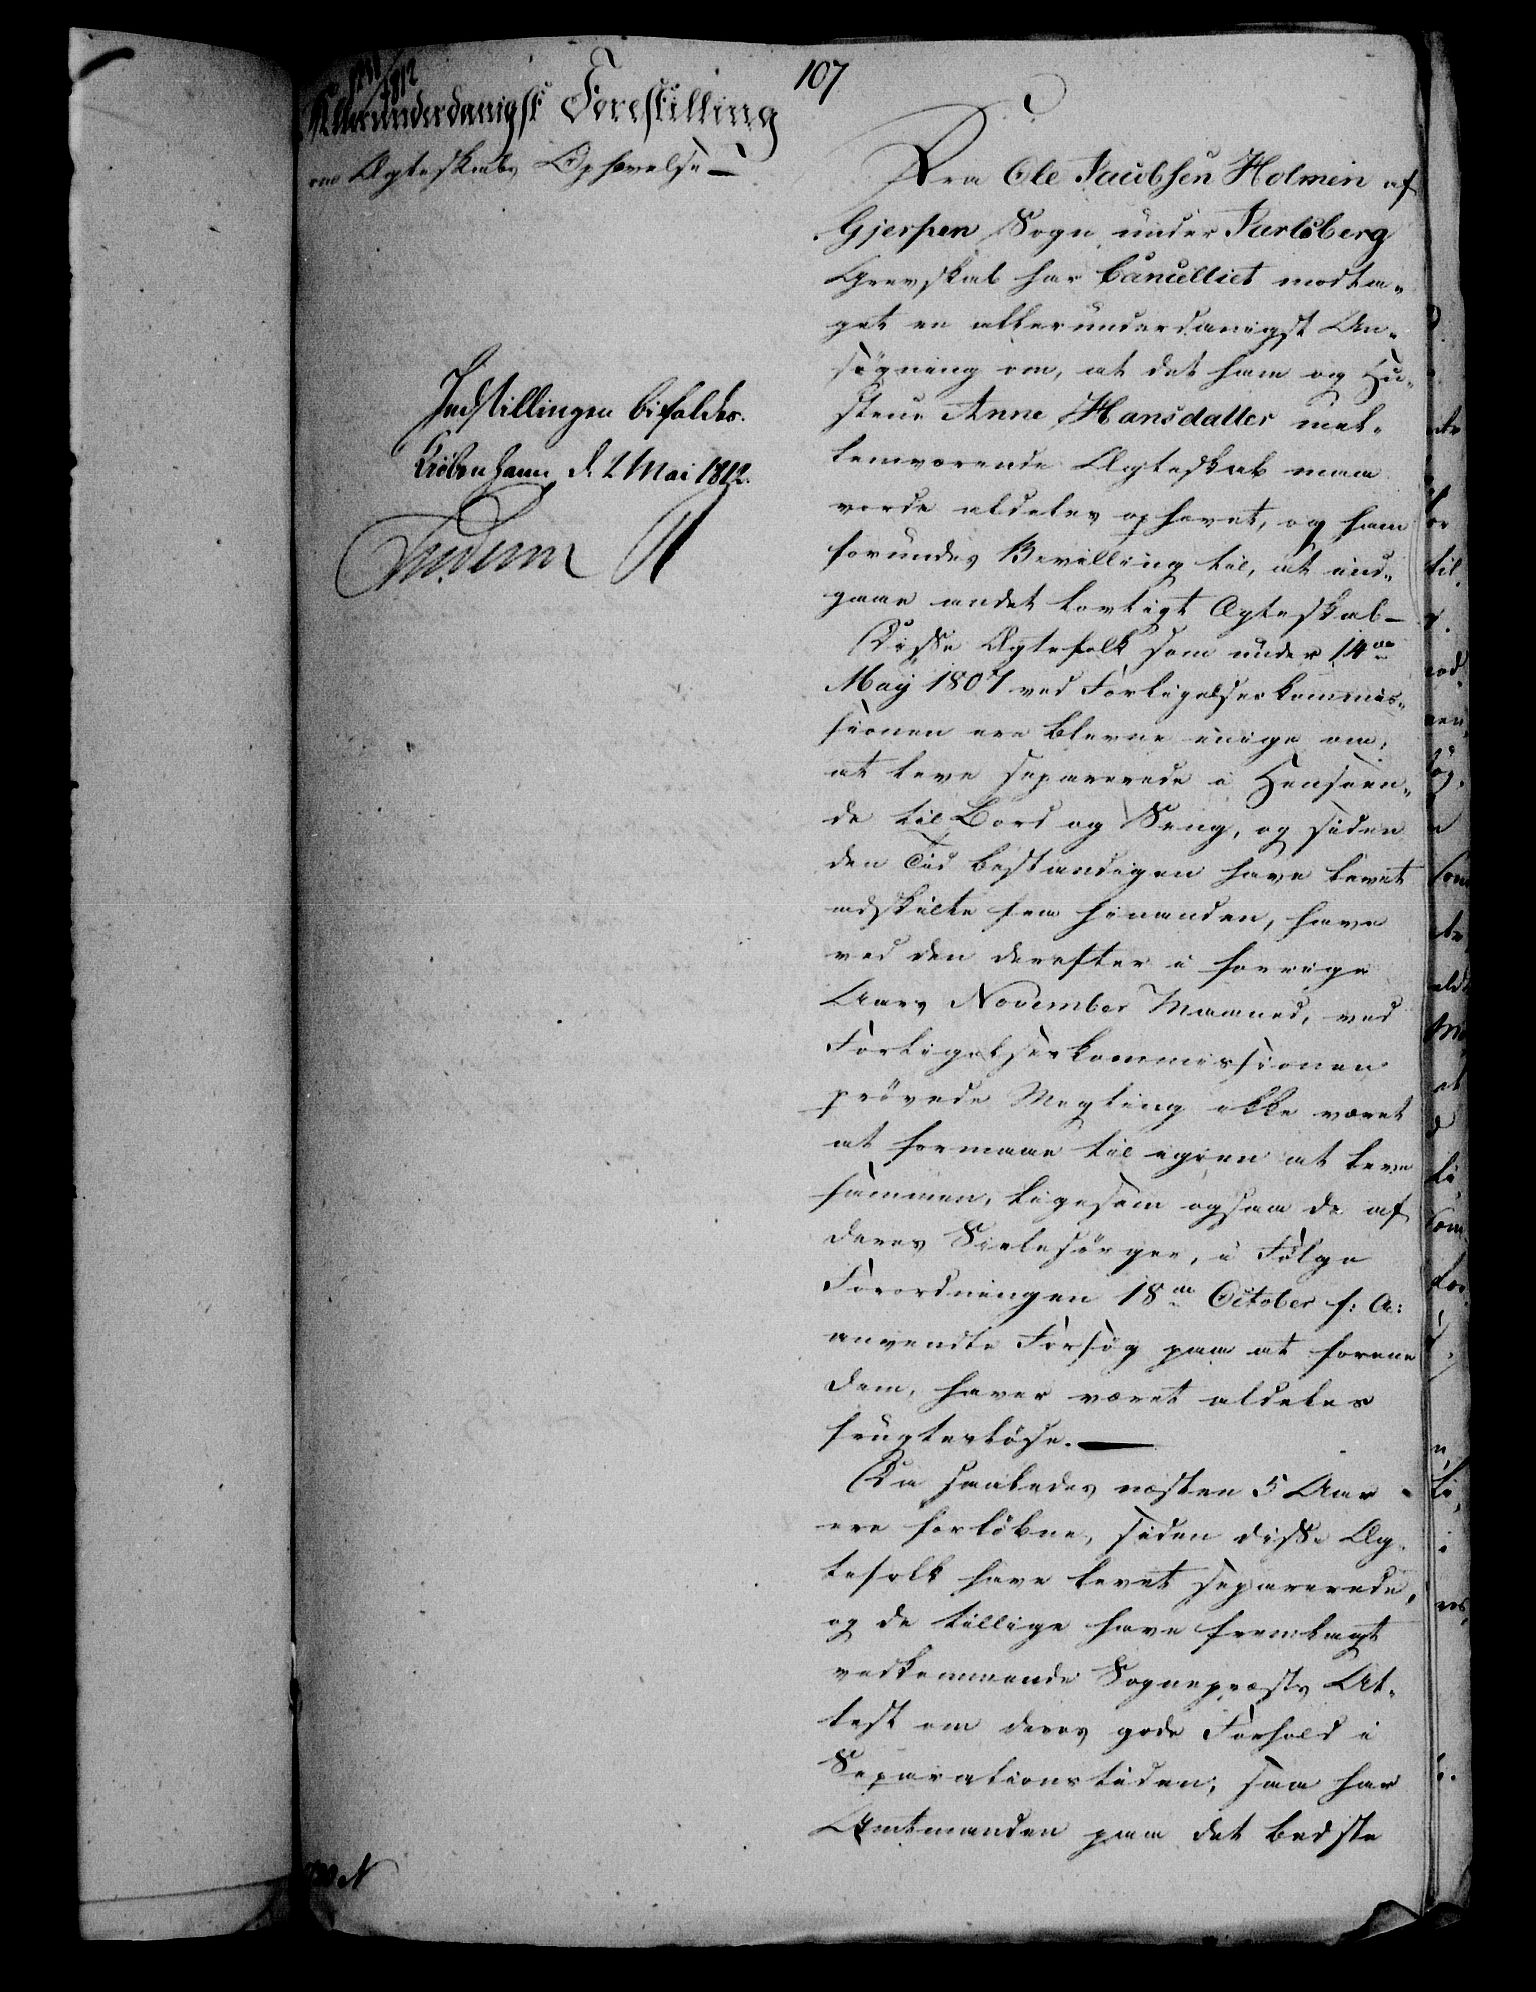 107
1812
Allerunderdanigst Forestilling
om Ægteskabs Ophævelse —
Indstillingen bifaldes.
Kiöbenhavn d. 2 Mai 1812.
Frederik R
Fra Ole Jacobsen Holmen af
Gjerpen Sogn under Jarlsberg
Grevskab har Cancelliet modta„
get en allerunderdanigst An„
søgning om, at det ham og Hu„
strue Anne Hansdatter mel„
lemværende Ægteskab maa
vorde aldeles ophævet, og ham
forundes Bevilling til, at ind„
gaae andet lovligt Ægteskab —
Disse Ægtefolk som under 14de
May 1807 ved Forligelseskommis„
sionen ere blevne enige om,
at leve separerede i Henseen„
de til Bord og Seng, og siden
den Tid bestandigen have levet
adskilte fra hinanden, have
ved den derefter i forrige
Aars November Maaned, ved
Forligelseskommissionen
prövede Megling ikke været
at formaae til igien at leve
sammen, ligesom ogsaa de af
deres Sielesörger, i Fölge
Forordningen 18de October f: A:
anvendte Forsög paa at forene
dem, haver været aldeles
frugteslöse. —
Da saaledes næsten 5 Aar
ere forløbne, siden disse Æg„
tefolk have levet separerede,
og de tillige have fremlagt
vedkommende Sognepræsts At„
test om deres gode Forhold i
Separationstiden; saa har
Amtmanden paa det bedste